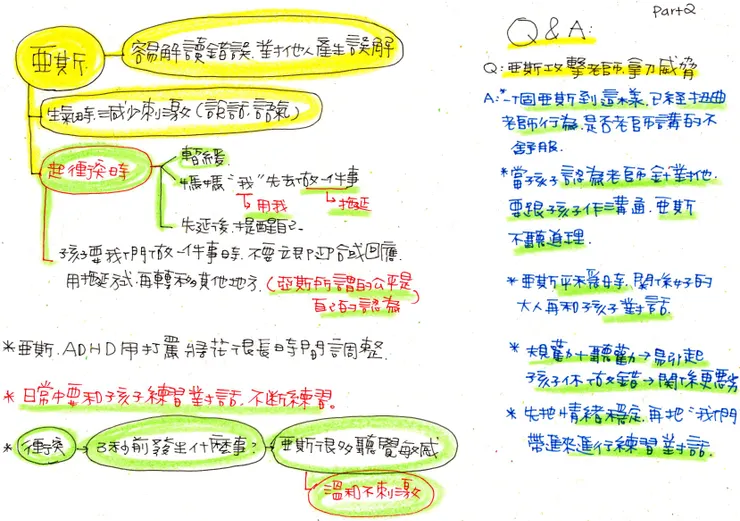 Part 2
亞斯
容易解讀錯誤.對他人產生誤解
生氣時＝減少刺激(說話.語氣)
起衝突時
暫緩.
媽媽"我"先去做一件事
用我
拖延
先延後.提醒自己.
孩子要我們做一件事時.不要立即迎合或回應
用拖延方式.再轉移其他地方.(亞斯所謂的公平是
自己的認為)
*亞斯.ADHD用打罵將花很長時間調整.
*日常中要和孩子練習對話.不斷練習。
*衝突
3秒前發生什麼事?
亞斯很多聽覺敏感
溫和不刺激
Q & A:
Q:亞斯攻擊老師.拿刀威脅
A:一個亞斯到這樣.已經扭曲
老師行為.是否老師講的不
舒服.
*當孩子認為老師針對他.
要跟孩子作溝通.亞斯
不聽道理.
*亞斯平穩時.關係好的
大人再和孩子對話.
*規勸+聽勸→易引起
孩子你做錯→關係更惡劣
*先把情緒穩定.再把"我們"
帶進來進行練習對話.